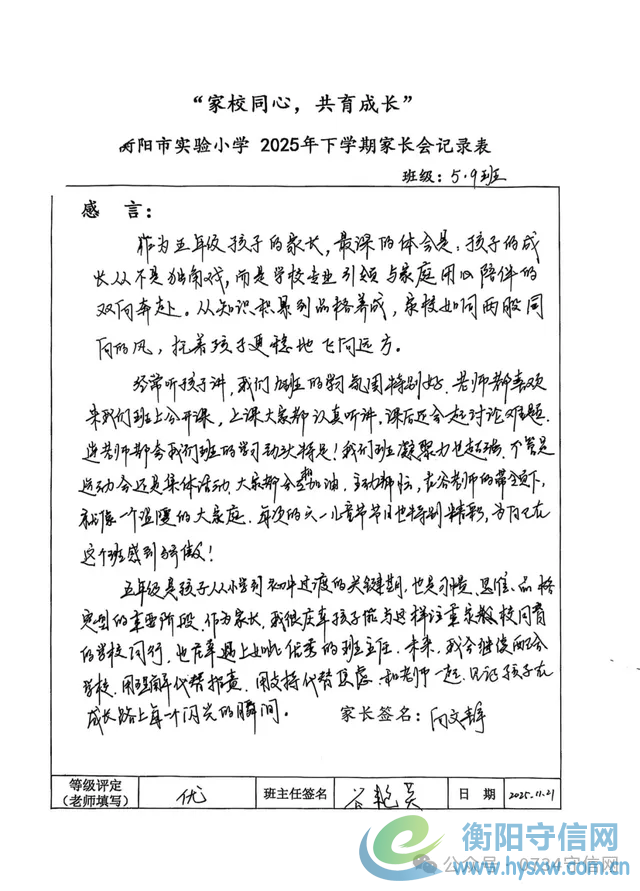 “家校同心，共育成长”
衡阳市实验小学 2025年下学期家长会记录表
班级：5.9班
感 言：
作为五年级孩子的家长，最深的体会是：孩子的成
长从不是独角戏，而是学校专业引领与家庭用心陪伴的
双向奔赴。从知识积累到品格养成，家校如同两股同
向的风，托着孩子更稳地飞向远方。
经常听孩子讲，我们班的学习氛围特别好，老师都喜欢
来我们班上公开课，上课大家都认真听讲，课后还会一起讨论难题，
连老师都夸我们班的学习劲头特足！我们班凝聚力也超强，不管是
运动会还是集体活动，大家都会加油，主动帮忙，在谷老师的带领下，
就像一个温暖的大家庭，每次的六一儿童节节目也特别精彩，为自己在
这个班感到骄傲！
五年级是孩子从小学到初中过渡的关键期，也是习惯、思维、品格
定型的重要阶段，作为家长，我很庆幸孩子能与这样注重家校共育
的学校同行，也庆幸遇上如此优秀的班主任，未来，我会继续配合
学校，用理解代替指责，用支持代替焦虑，和老师一起，见证孩子在
成长路上每一个闪光的瞬间。
家长签名：向文静
等级评定
（老师填写）
优
班主任签名
谷艳英
日 期
2025.11.21
衡阳守信网
公众号·0734守信网
www.hysxw.com